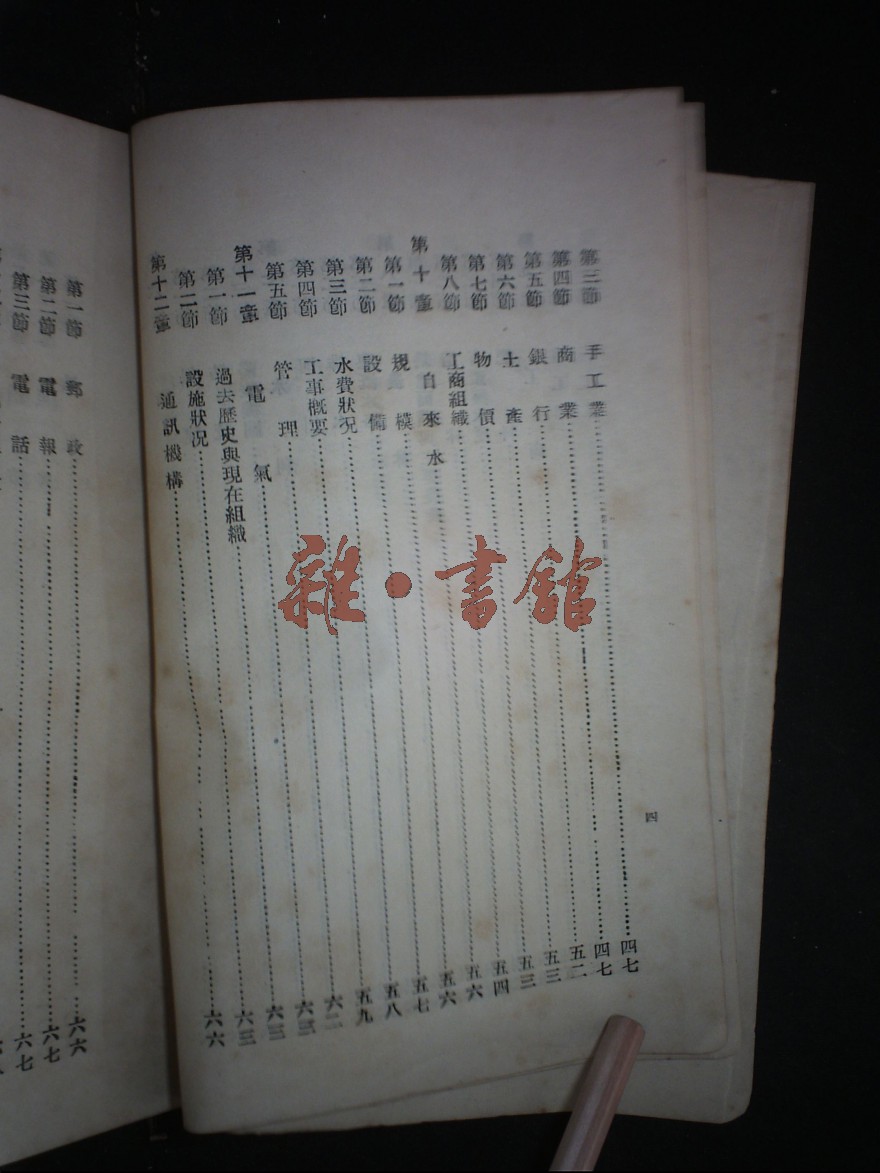 四
第三節 手工業 四七
第四節 商業 四七
第五節 銀行 五二
第六節 土產 五三
第七節 物價 五三
第八節 工商組織 五四
第十章 自來水 五六
第一節 規模 五六
第二節 設備 五七
第三節 水費狀況 五八
第四節 工事概要 五九
第五節 管理 六二
第十一章 電氣 六三
第一節 過去歷史與現在組織 六三
第二節 設施狀況 六三
第十二章 通訊機構 六六
第一節 郵政 六六
第二節 電報 六七
第三節 電話 六七
雜·書館